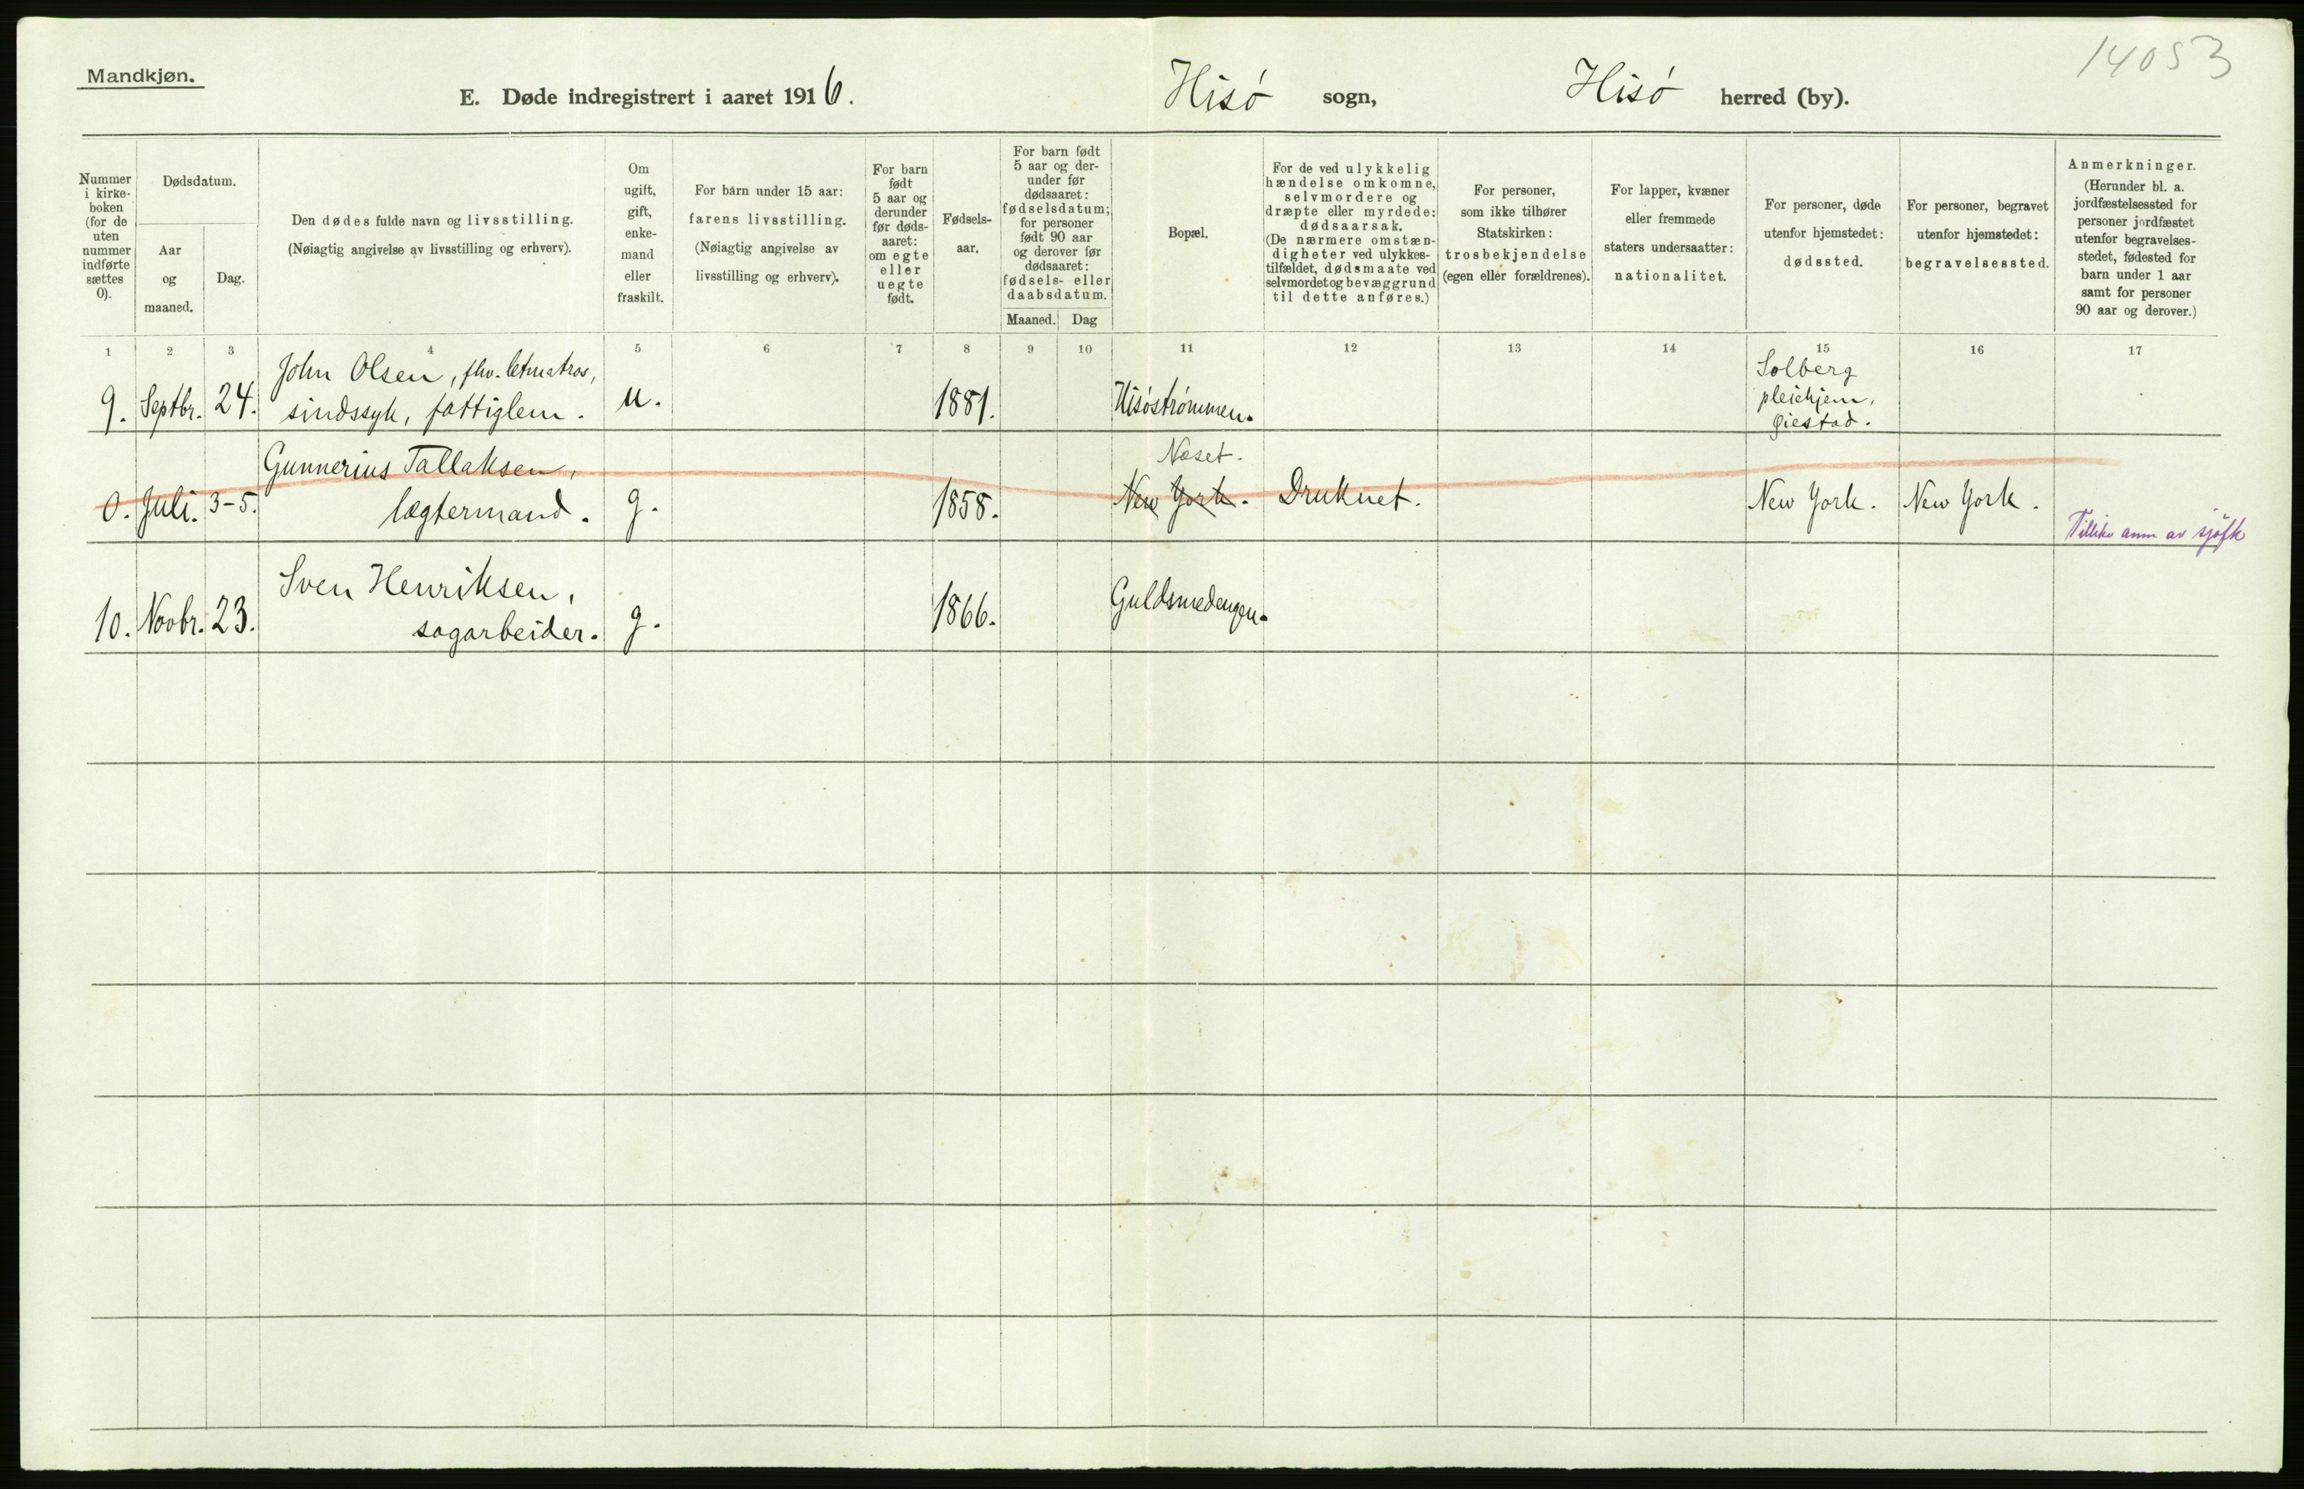 14053
Mandkjøn.
E. Døde indregistrert i aaret 1916.
Hisö sogn,
Hisö herred (by).
Nummer
i kirke-
boken
(for de
uten
nummer
indførte
sættes
0).
Dødsdatum.
Aar
og
maaned.
Dag.
Den dødes fulde navn og livsstilling.
(Nøiagtig angivelse av livsstilling og erhverv).
Om
ugift,
gift,
enke-
mand
eller
fraskilt.
For barn under 15 aar:
farens livsstilling.
(Nøiagtig angivelse av
livsstilling og erhverv).
For barn
født
5 aar og
derunder
før døds-
aaret:
om egte
eller
uegte
født.
Fødsels-
aar.
For barn født
5 aar og der-
under før
dødsaaret:
fødselsdatum;
for personer
født 90 aar
og derover før
dødsaaret:
fødsels- eller
daabsdatum.
Maaned. Dag
Bopæl.
For de ved ulykkelig
hændelse omkomne,
selvmordere og
dræpte eller myrdede:
dødsaarsak.
(De nærmere omstæn-
digheter ved ulykkes-
tilfældet, dødsmaate ved
selvmordet og bevæggrund
til dette anføres.)
For personer,
som ikke tilhører
Statskirken:
trosbekjendelse
(egen eller forældrenes).
For lapper, kvæner
eller fremmede
staters undersaatter:
nationalitet.
For personer, døde
utenfor hjemstedet:
dødssted.
For personer, begravet
utenfor hjemstedet:
begravelsessted.
Anmerkninger.
(Herunder bl. a.
jordfæstelsessted for
personer jordfæstet
utenfor begravelses-
stedet, fødested for
barn under 1 aar
samt for personer
90 aar og derover.)
1 2 3 4 5 6 7 8 9 10 11 12 13 14 15 16 17
John Olsen, fhv. letmatros,
9. Septbr. 24. sindssyk, fattiglem. u. 1881. Hisöströmmen.
Solberg
pleiehjem,
Øiestad.
Gunnerius Tallaksen,
Næset.
0. Juli. 3-5. lægtermand. g. 1858. New York. Druknet. New York. New York.
av sjöfk
Sven Henriksen,
10. Novbr. 23. sagarbeider. g. 1866. Guldsmedengen.